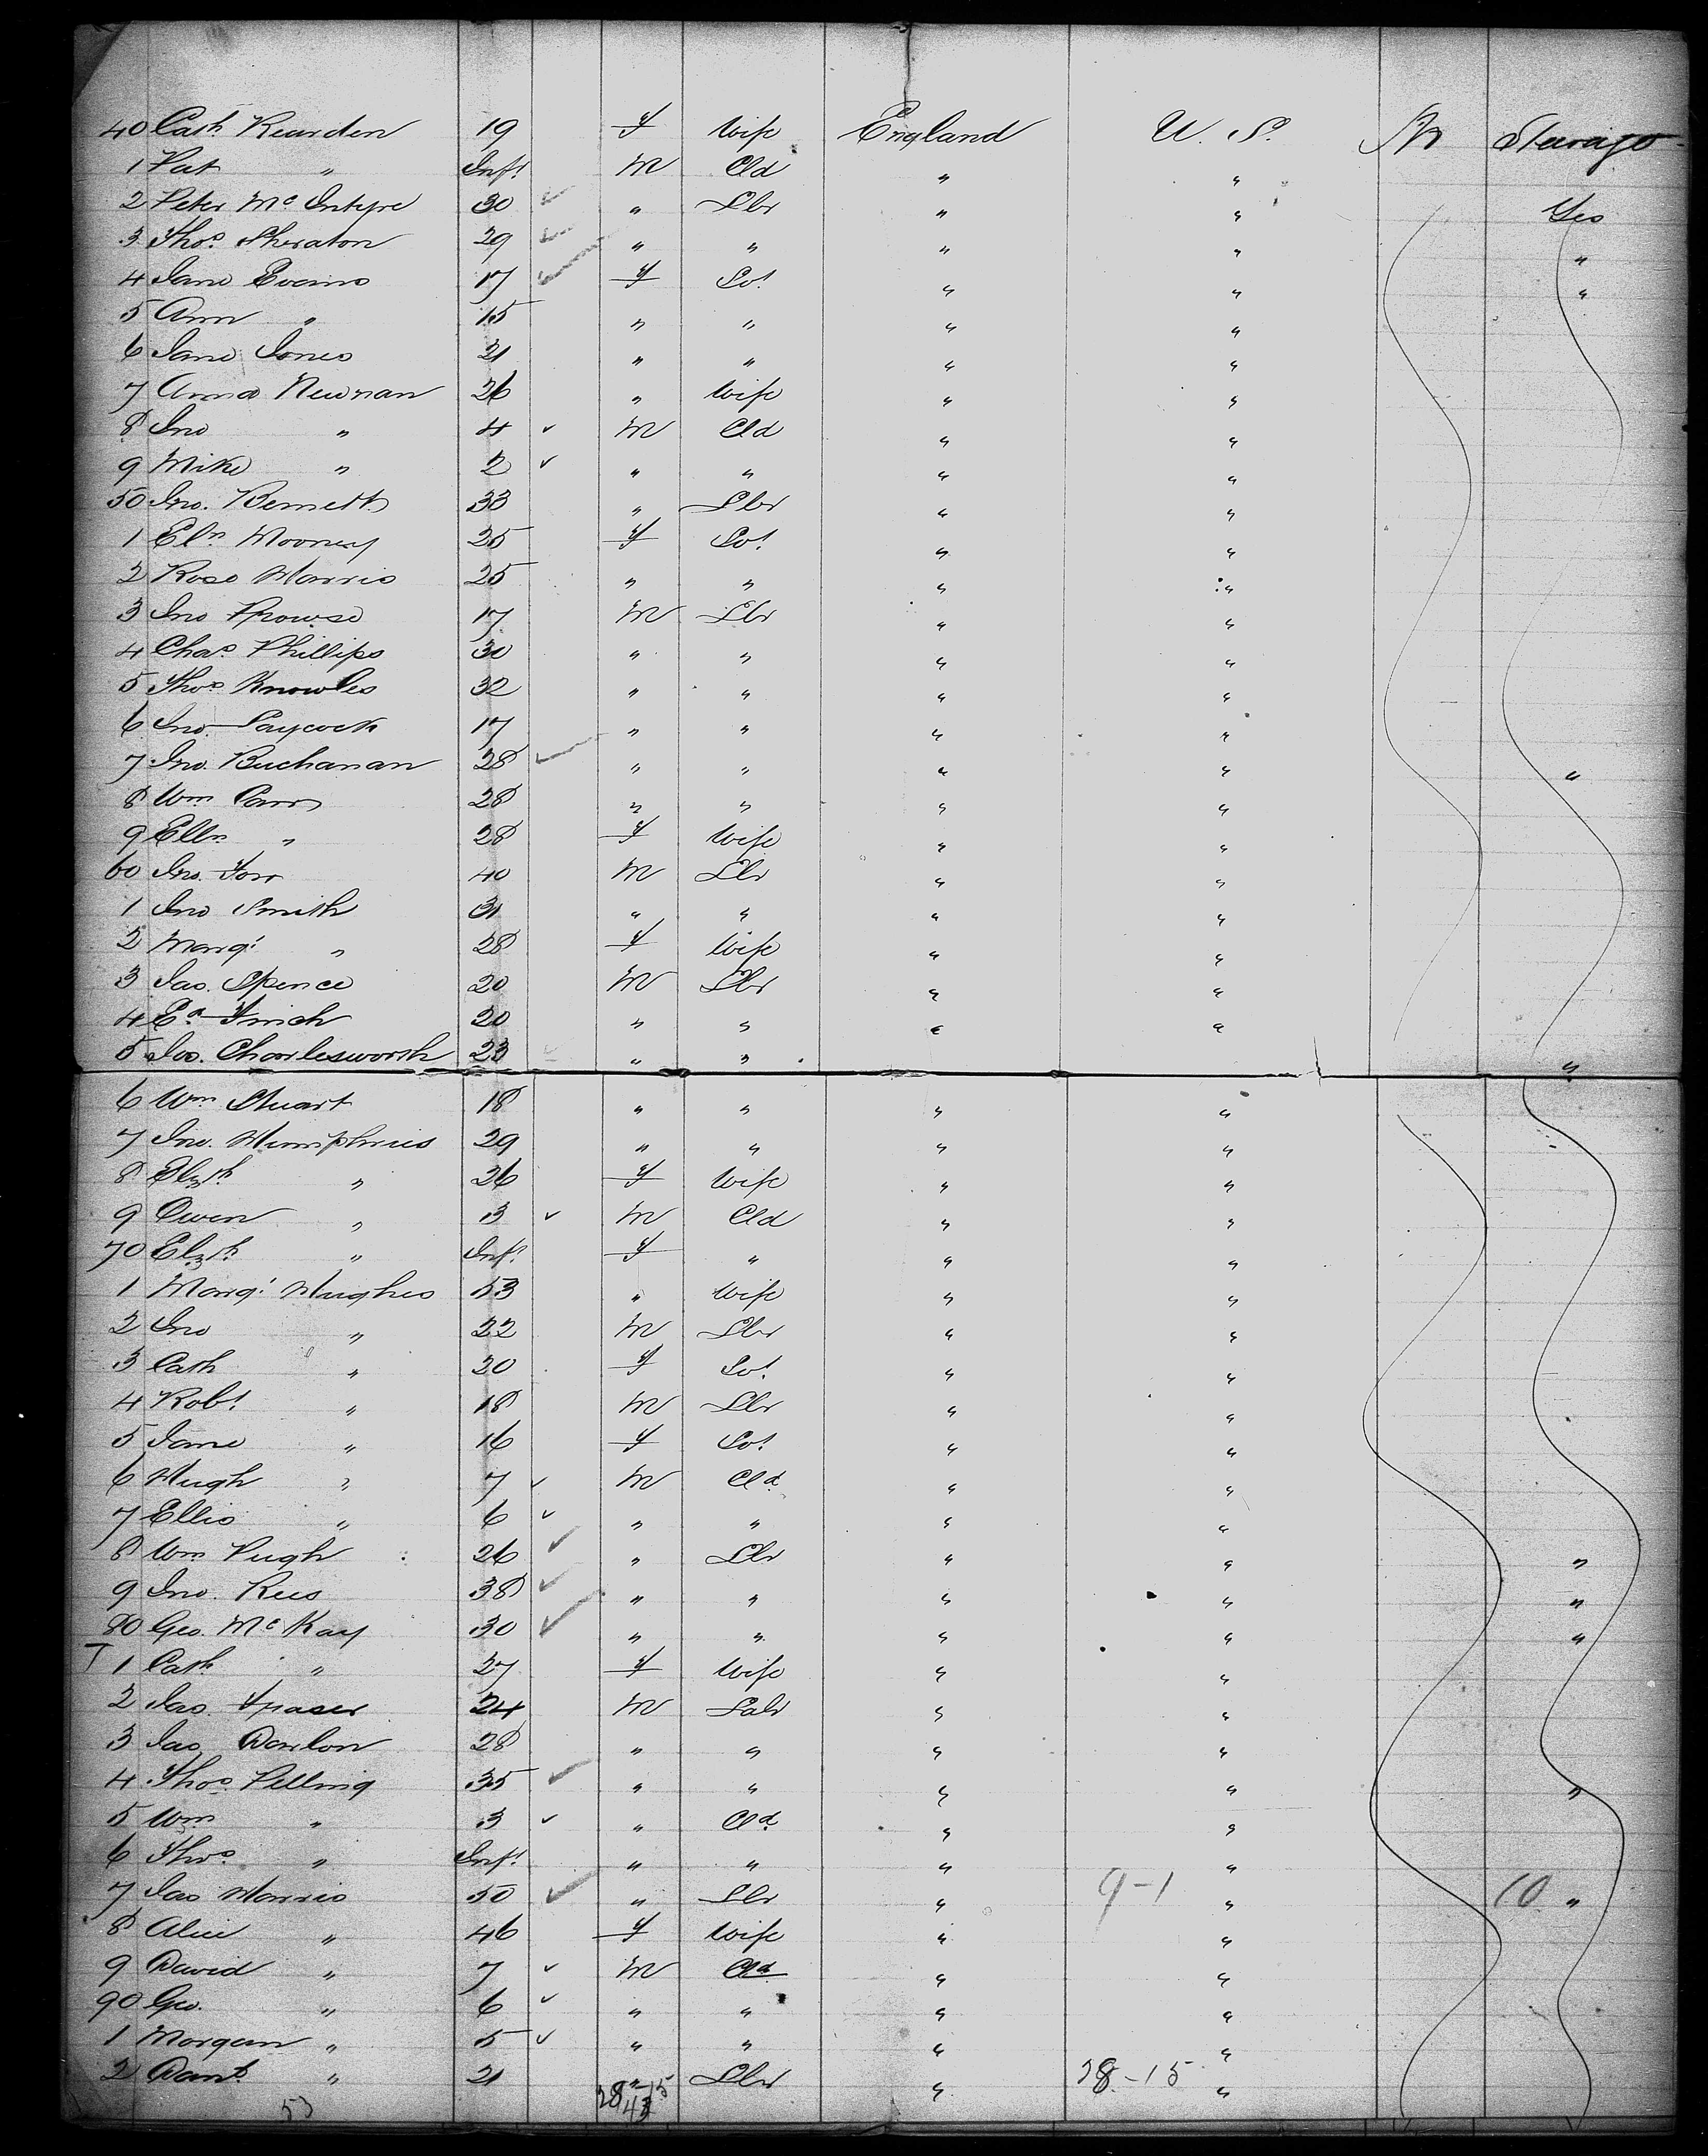 40 Cath Rearden 19 f Wife England U. S. Steerage
1 Pat " Inft M Cld " "
2 Peter McIntyre 30 " Lbr " " Yes
3 Thos Sheraton 29 " " " " "
4 Jane Evans 17 f Svt " " "
5 Ann " 15 " " " "
6 Jane Jones 21 " " " "
7 Anna Newnan 26 " Wife " "
8 Jno " 4 M Cld " "
9 Mike " 2 " " " "
50 Jno. Bennett 33 " Lbr " "
1 Eln Mooney 25 f Svt " "
2 Rose Harris 25 " " " "
3 Jno Prowse 17 M Lbr " "
4 Chas Phillips 30 " " " "
5 Thos Knowles 32 " " " "
6 Jno Laycock 17 " " " "
7 Jno. Buchanan 28 " " " " "
8 Wm Carr 28 " " " "
9 Elln " 28 f Wife " "
60 Jno. 40 M Lbr " "
1 Jno Smith 31 " " " "
2 Margt " 28 f Wife " "
3 Jas. Spence 20 M Lbr " "
4 Ed Finch 20 " " " "
5 Jos. Charlesworth 23 " " " " "
6 Wm Stuart 18 " " " "
7 Jno. Humphries 29 " " " "
8 Elzth " 26 f Wife " "
9 Owen " 3 M Cld " "
70 Elzth " Inft f " " "
1 Margt Hughes 53 " Wife " "
2 Jno " 22 M Lbr " "
3 Cath " 20 f Svt " "
4 Robt " 18 M Lbr " "
5 Jane " 16 f Svt " "
6 Hugh " 7 M Cld " "
7 Ellis " 6 " " " "
8 Wm Pugh 26 " Lbr " " "
9 Jno. Rees 38 " " " " "
80 Geo. McKay 30 " " " " "
1 Cath " 27 f Wife " "
2 Jas. Fraser 24 M Labr " "
3 Jas 28 " " " "
4 Thos Pelling 35 " " " " "
5 Wm " 3 " Cld " "
6 Thos " Inft " " " "
7 Jas Harris 50 " Lbr " 9-1 " 10 "
8 Alice " 46 f Wife " "
9 David " 7 M Cld " "
90 Geo. " 6 " " " "
1 Morgan " 5 " " " "
2 Danl " 21 " Lbr " 38-15 "
53